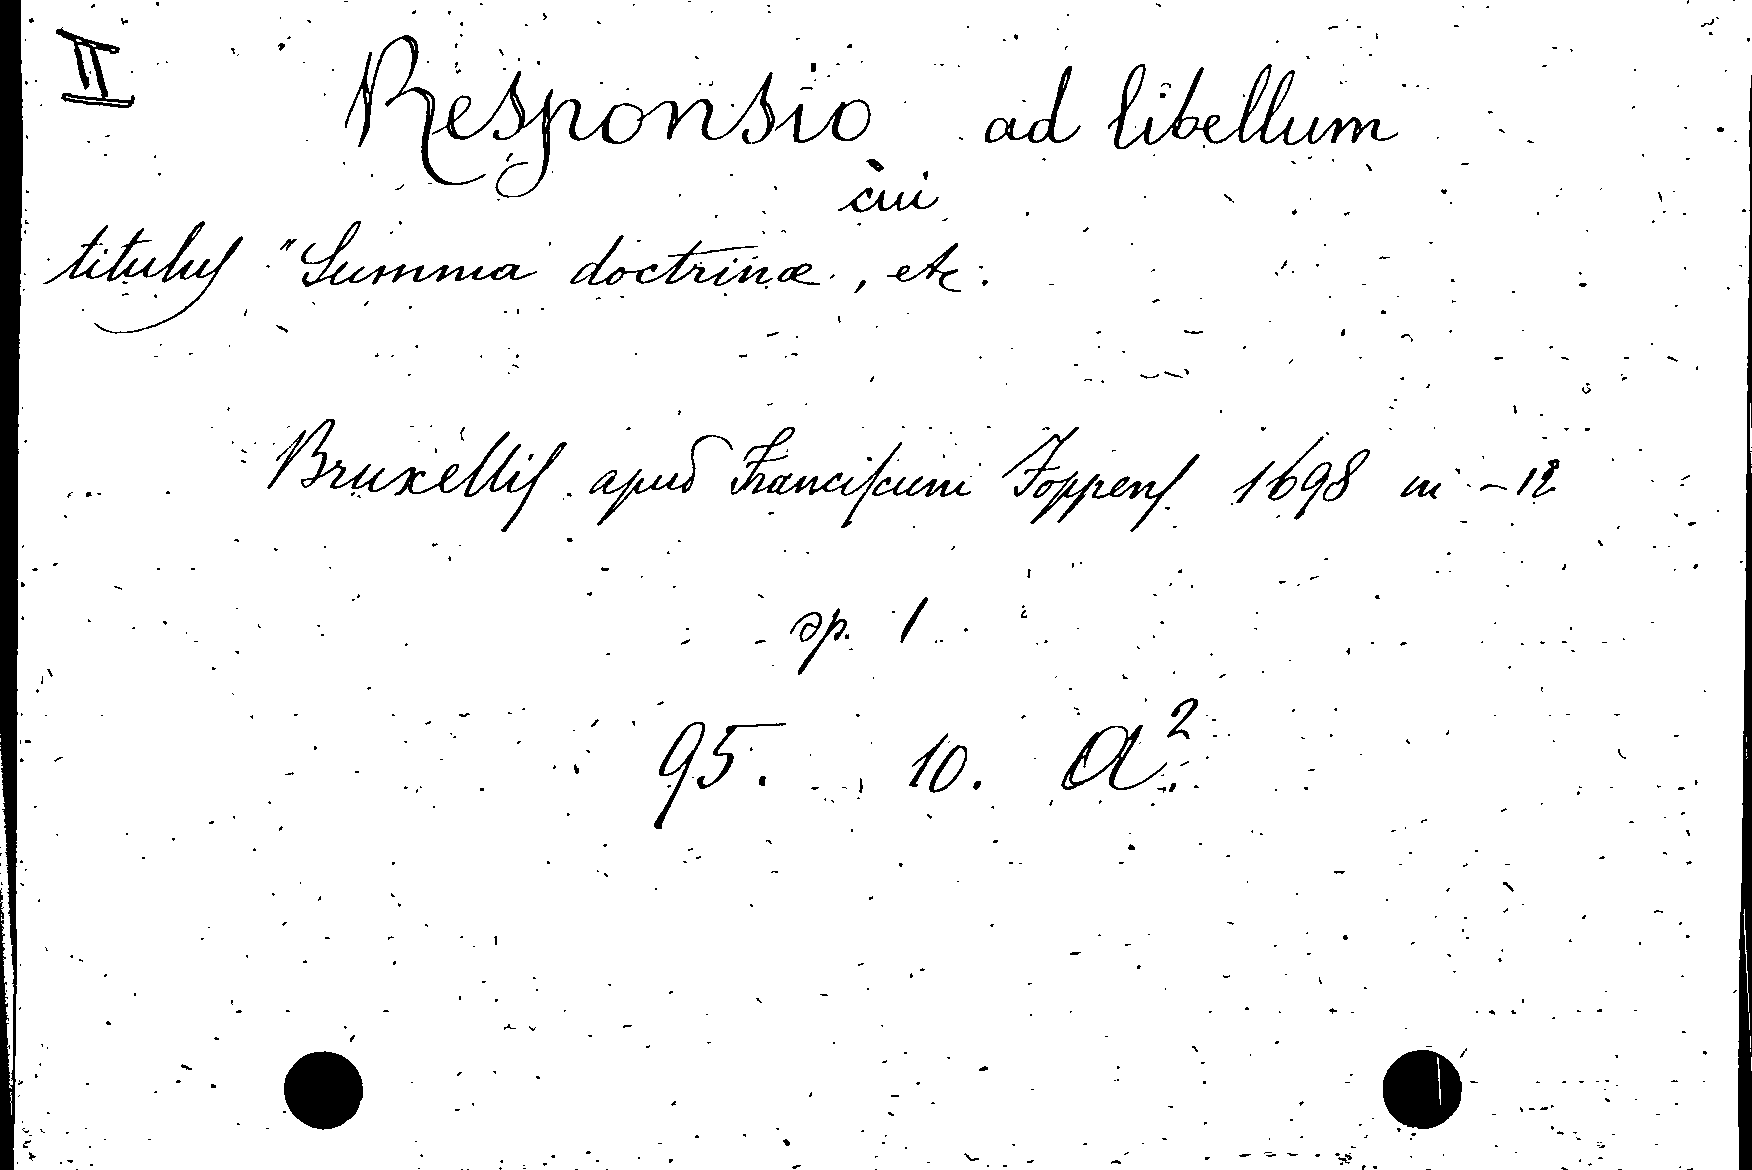 II
Responsio ad libellum
cui
titulus "Summa doctrinæ, etc.
Bruxellis apud Franciscum Foppens 1698 in -12
op. 1
95. 10. a²